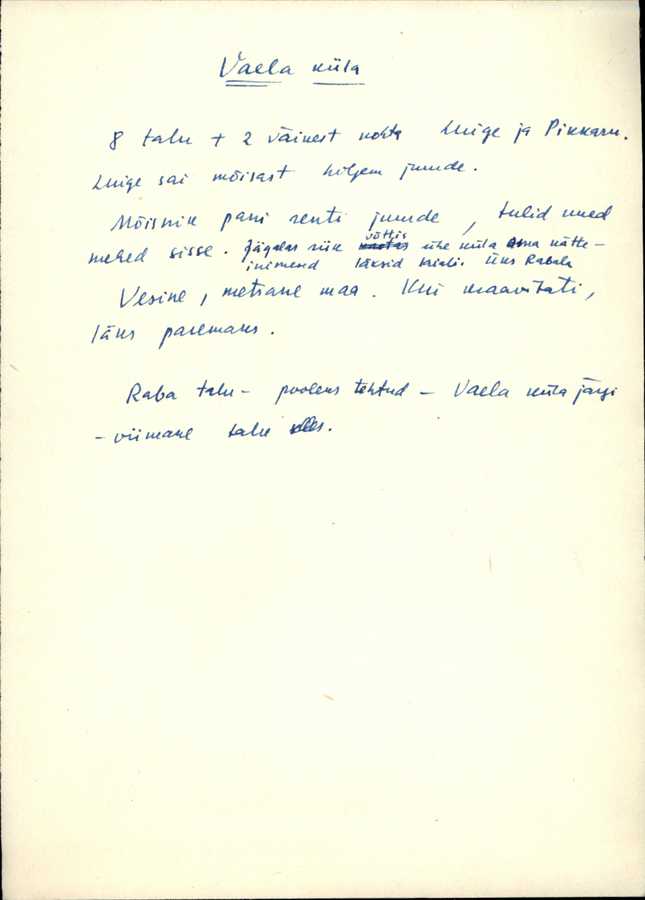 Vaela küla
8 talu + 2 väikest kohta Luige ja Pikkaru.
Luige sai mõisast hiljem juurde.
Mõisnik pani renti juurde, tulid uued
mehed sisse. Jägalas riik võttis ühe küla oma kätte –
inimesed läksid laiali. Üks Rabala
Vesine, metsane maa. Kui kraavitati,
läks paremaks.
Raba talu – pooleks tehtud – Vaela küla järgi
– viimane talu